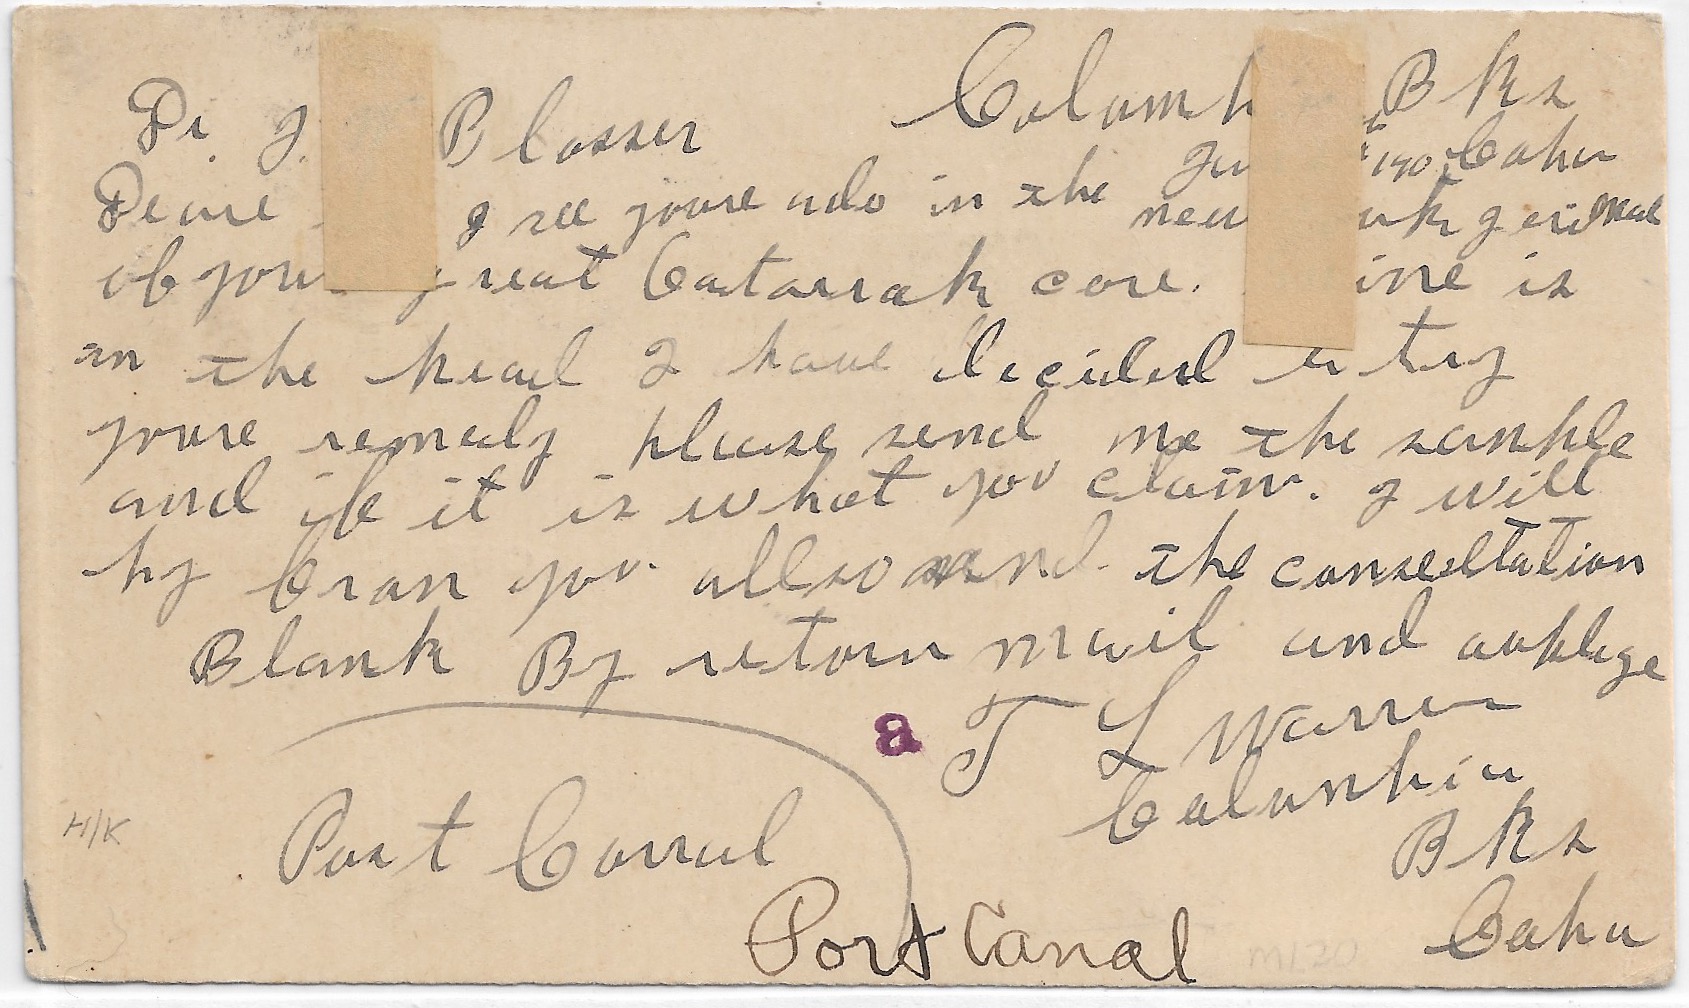 Dr. J. Blosser Columb Bks
Ju 190 Cahu
Deare I see youre ads in the new
of your great Catarrah core. ine is
in the head I have decided to try
youre remedy please send me the sample
and if it is what you claim. I will
by bran you allso send the consultation
Blank By return mail and oublige
a T L Warren
Columbia
Bks
Post Corral
H/K
Cahu
Port Canal
M120